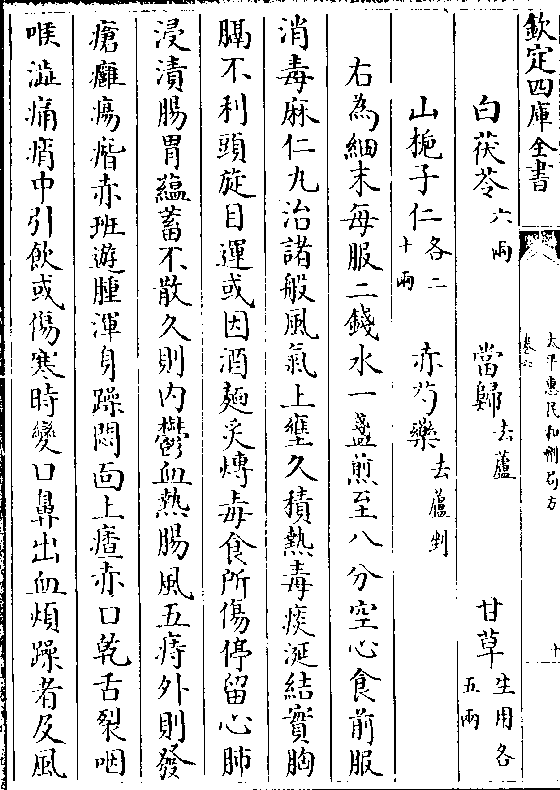 欽定四庫全書
太平惠民和劑局方
卷六
白茯苓六兩 當歸去蘆 甘草生用各五兩
山梔子仁各二十兩 赤芍藥去蘆剉
右為細末每服二錢水一盞煎至八分空心食前服
消毒麻仁丸治諸般風氣上壅久積熱毒痰涎結實胸
膈不利頭旋目運或因酒麵炙煿毒食所傷停留心肺
浸漬腸胃蘊蓄不散久則内鬱血熱腸風五痔外則發
瘡癰瘍㾦赤班遊腫渾身躁悶面上㾴赤口乾舌裂咽
喉澁痛痟中引飲或傷寒時變口鼻出血煩躁者及風